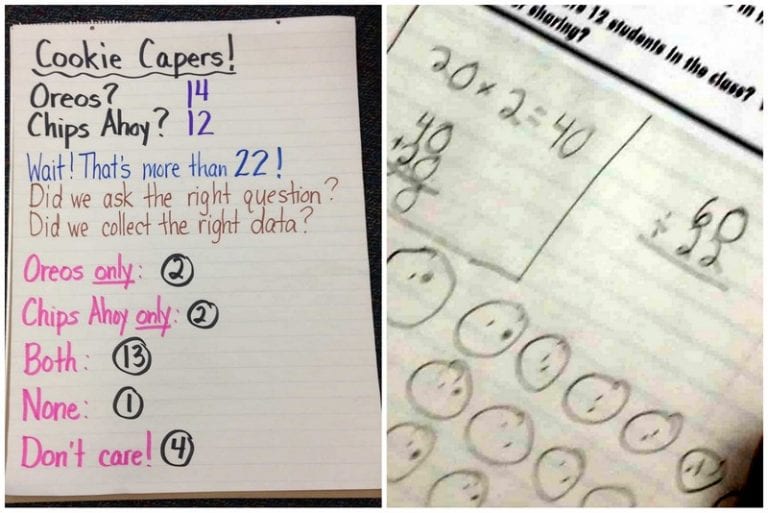 Cookie Capers!
Oreos? 14
Chips Ahoy? 12
Wait! That's more than 22!
Did we ask the right question?
Did we collect the right data?
Oreos only: 2
Chips Ahoy only: 2
Both: 13
None: 1
Don't care! 4
12 students in the class?
sharing?
20 × 2 = 40
40
60
÷ 22